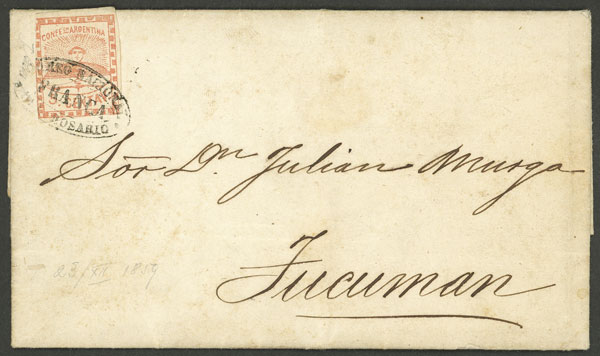 CONFEON ARGENTINA
FRANCA
ROSARIO
Sōr Dn Julian Murga
Tucuman
23/XI 1859